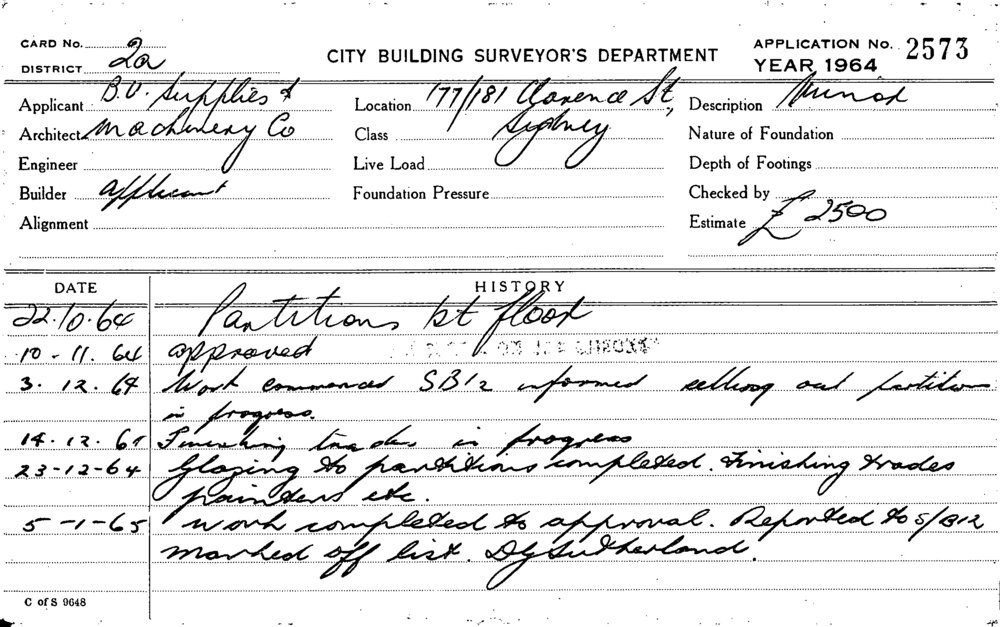 CARD No. 2a
DISTRICT
CITY BUILDING SURVEYOR'S DEPARTMENT
APPLICATION No. 2573
YEAR 1964
Applicant B.V. Supplies &
Architect Machinery Co
Engineer
Builder applicant
Alignment
Location 177/181 Clarence St,
Class Sydney
Live Load
Foundation Pressure
Description Minor
Nature of Foundation
Depth of Footings
Checked by
Estimate £ 2500
DATE HISTORY
22.10.64 Partitions 1st floor
10-11.64 approved
3.12.64 Work commenced SB12 informed setting out partitions
in progress.
14.12.64 Finishing trades in progress
23-12-64 Glazing to partitions completed. Finishing trades
painters etc.
5-1-65 Work completed to approval. Reported to S/B12
Marked off list. DG Sutherland.
C of S 9648